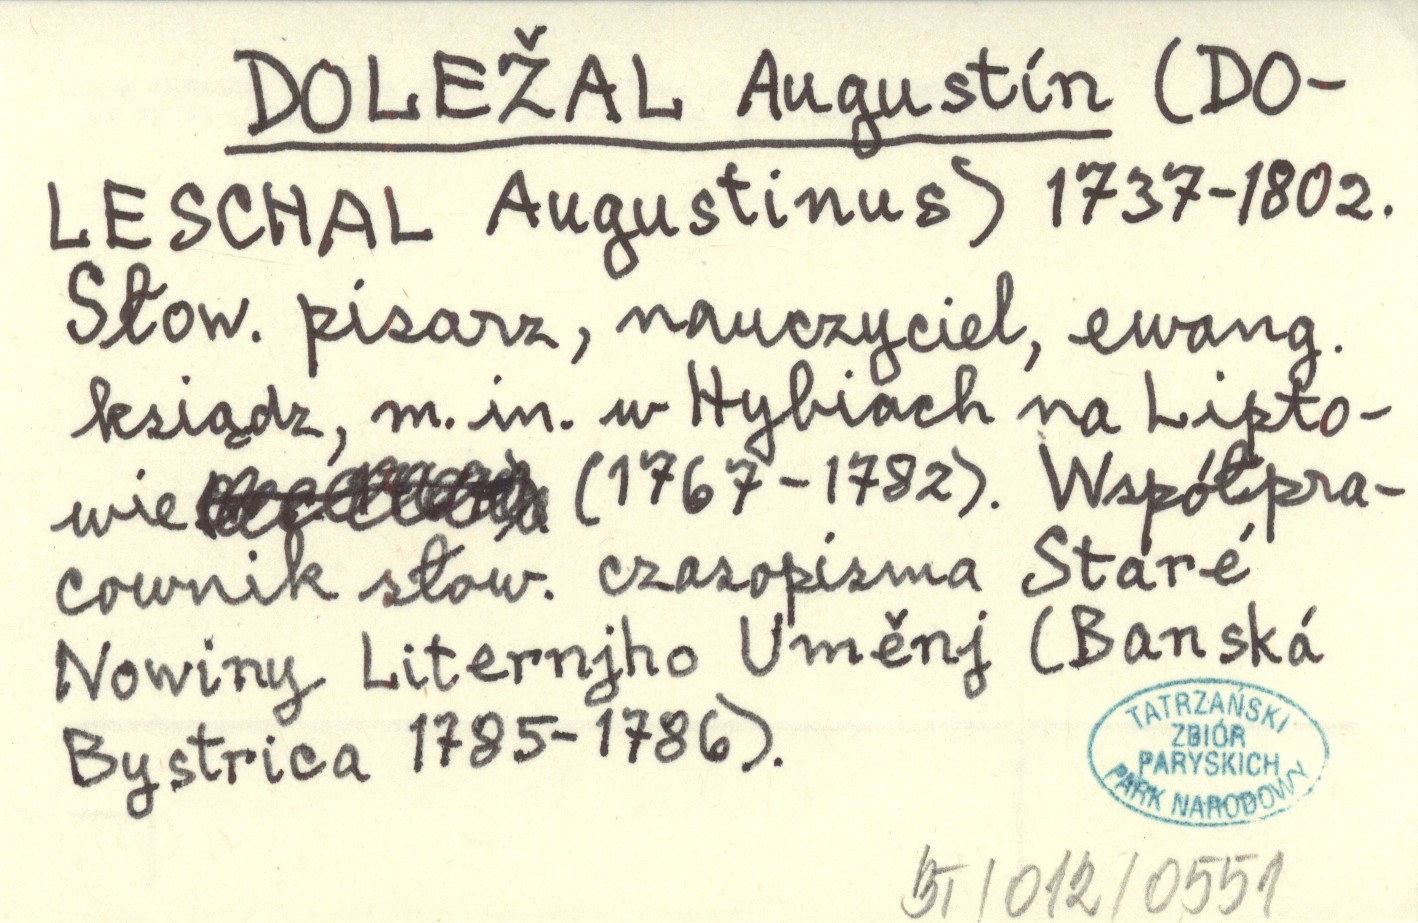 DOLEŽAL Augustín (DO-
LESCHAL Augustinus) 1737-1802.
Słow. pisarz, nauczyciel, ewang.
ksiądz, m.in. w Hybiach na Lipto-
wie (1767-1782). Współpra-
cownik słow. czasopisma Staré
Nowiny Liternjho Uměnj (Banská
Bystrica 1785-1786).
TATRZAŃSKI
ZBIÓR
PARYSKICH
PARK NARODOWY
/012/0551